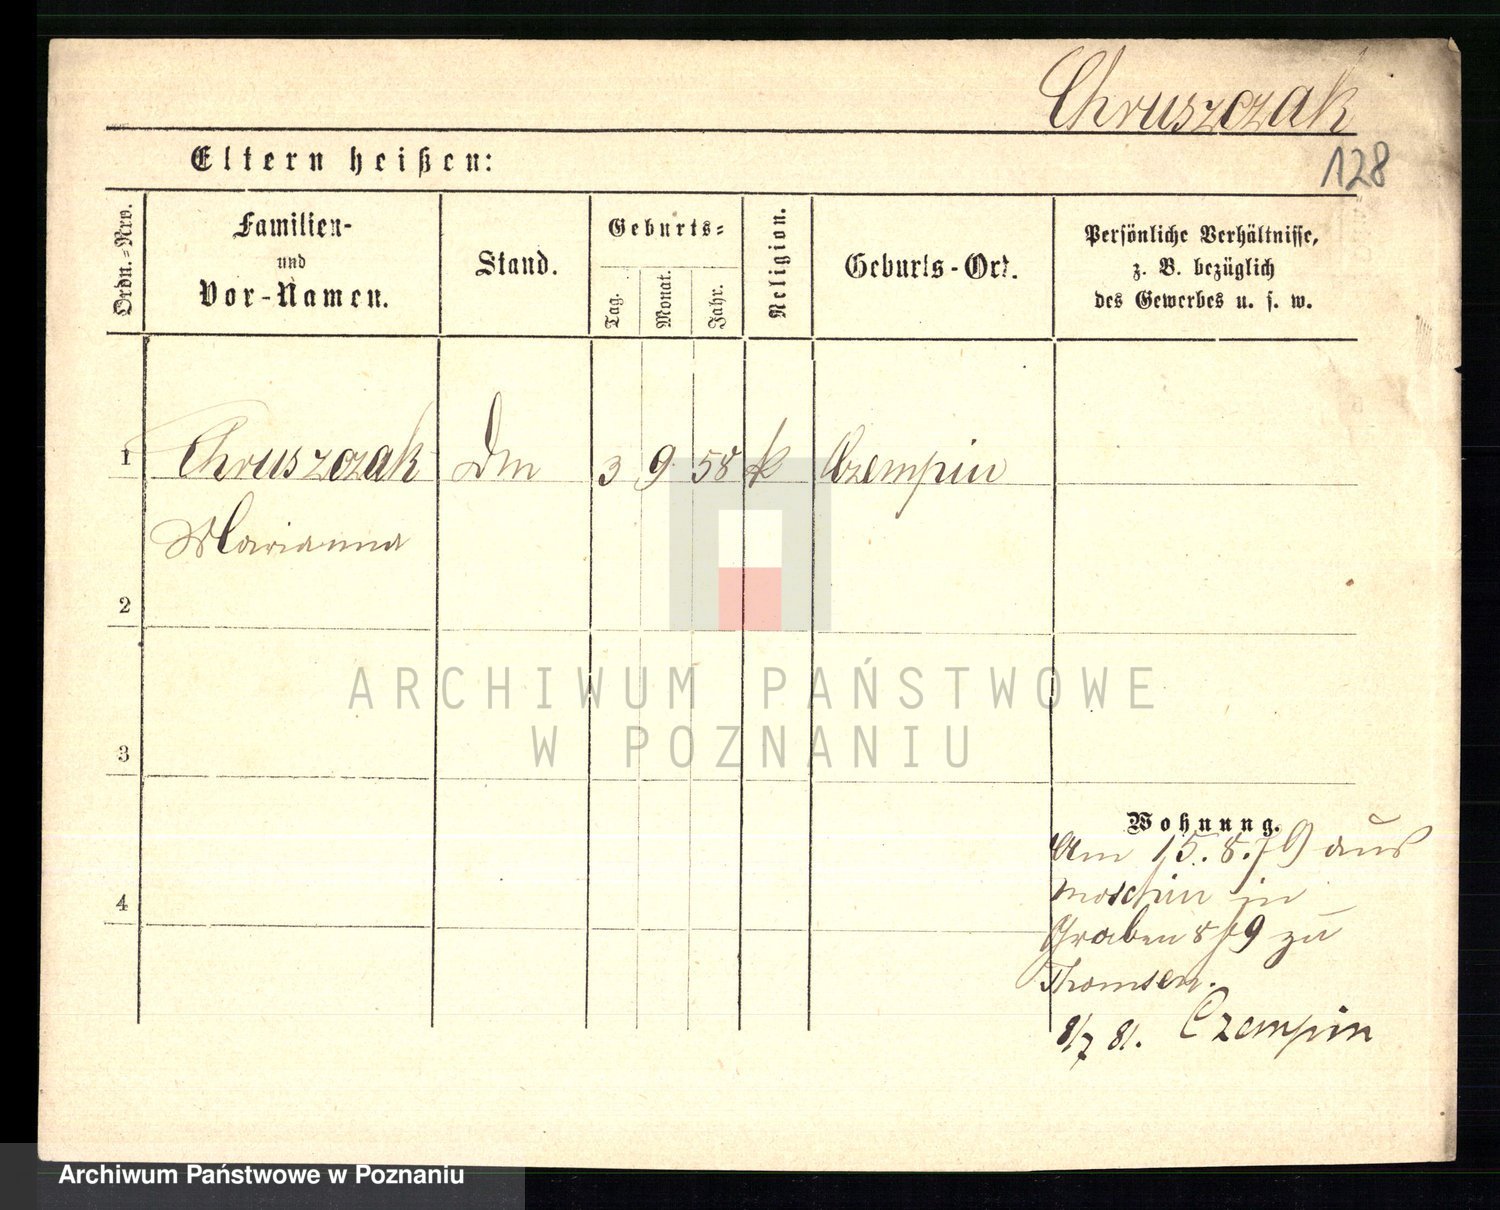 Chruszczak
128
Eltern heißen:
Ordn.-Nro.
Familien-
und
Vor-Namen.
Stand.
Geburts-
Tag.
Monat.
Jahr.
Religion.
Geburts-Ort.
Persönliche Verhältnisse,
z. B. bezüglich
des Gewerbes u. s. w.
1 Chruszczak Dm 3 9 58 k Czempin
Marianna
2
3
4
Wohnung.
Am 15.8.79 aus
Moschin in
Graben 8/9 zu
Thomsen.
8/7 81. Czempin
ARCHIWUM PAŃSTWOWE
W POZNANIU
Archiwum Państwowe w Poznaniu